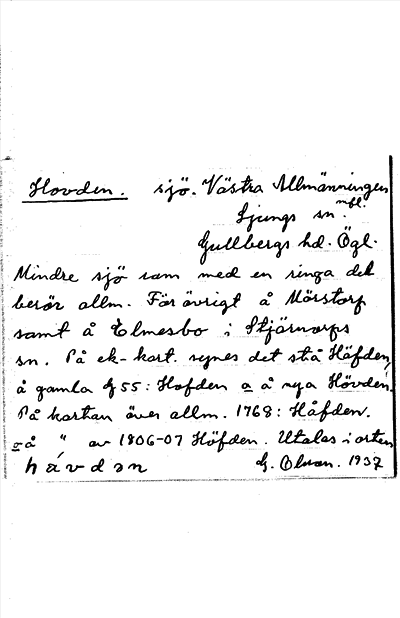 Hovden. sjö. Västra Allmänningen
m fl.
Ljungs sn.
Gullbergs hd. Ögl.
Mindre sjö som med en ringa del
berör allm. För övrigt å Mörstorp
samt å Elmesbo i Stjärnorps
sn. På ek-kart. synes det stå Höfden,
å gamla G 55: Hofden o å nya Hövden!
På kartan över allm. 1768: Håfden.
o å " av 1806-07 Höfden. Uttalas i orten
hávdən G. Olsson. 1937